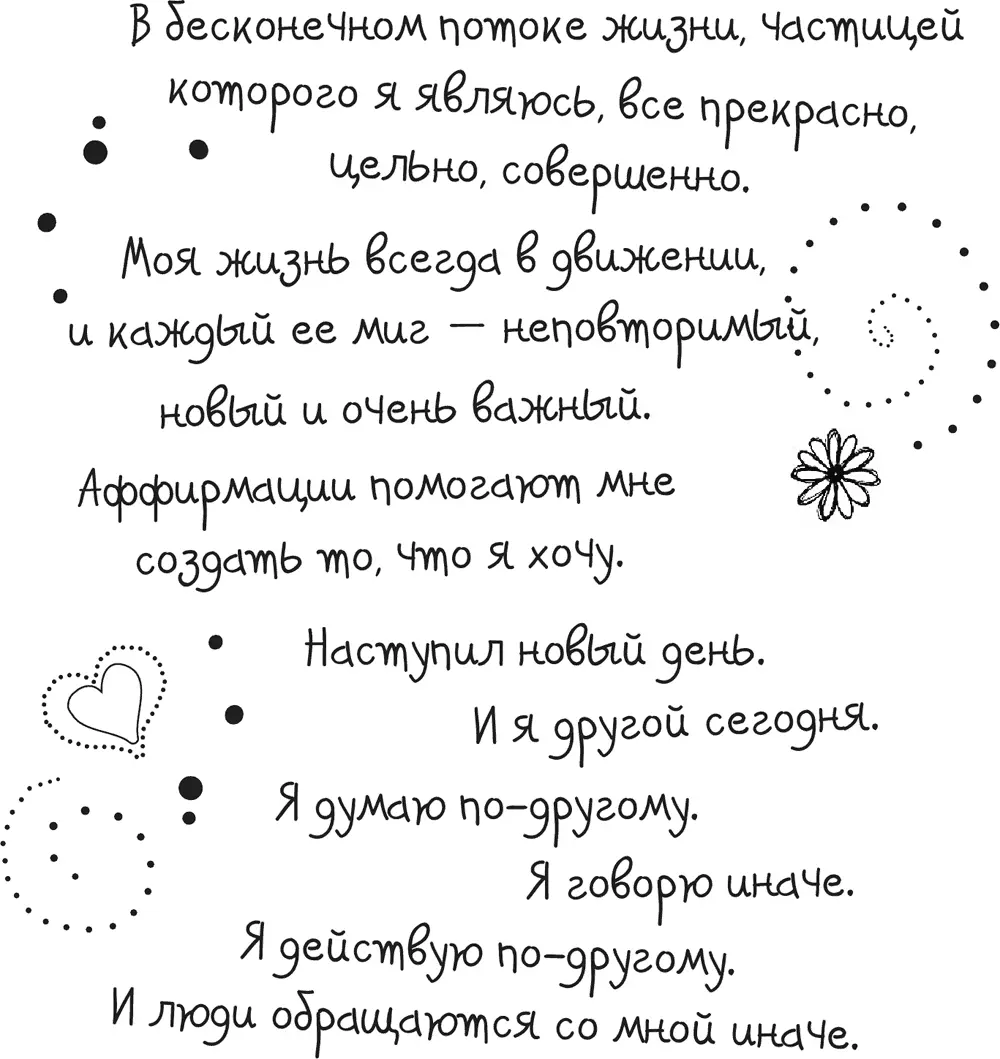 В бесконечном потоке жизни, частицей
которого я являюсь, все прекрасно,
цельно, совершенно.
Моя жизнь всегда в движении,
и каждый ее миг — неповторимый,
новый и очень важный.
Аффирмации помогают мне
создать то, что я хочу.
Наступил новый день.
И я другой сегодня.
Я думаю по-другому.
Я говорю иначе.
Я действую по-другому.
И люди обращаются со мной иначе.